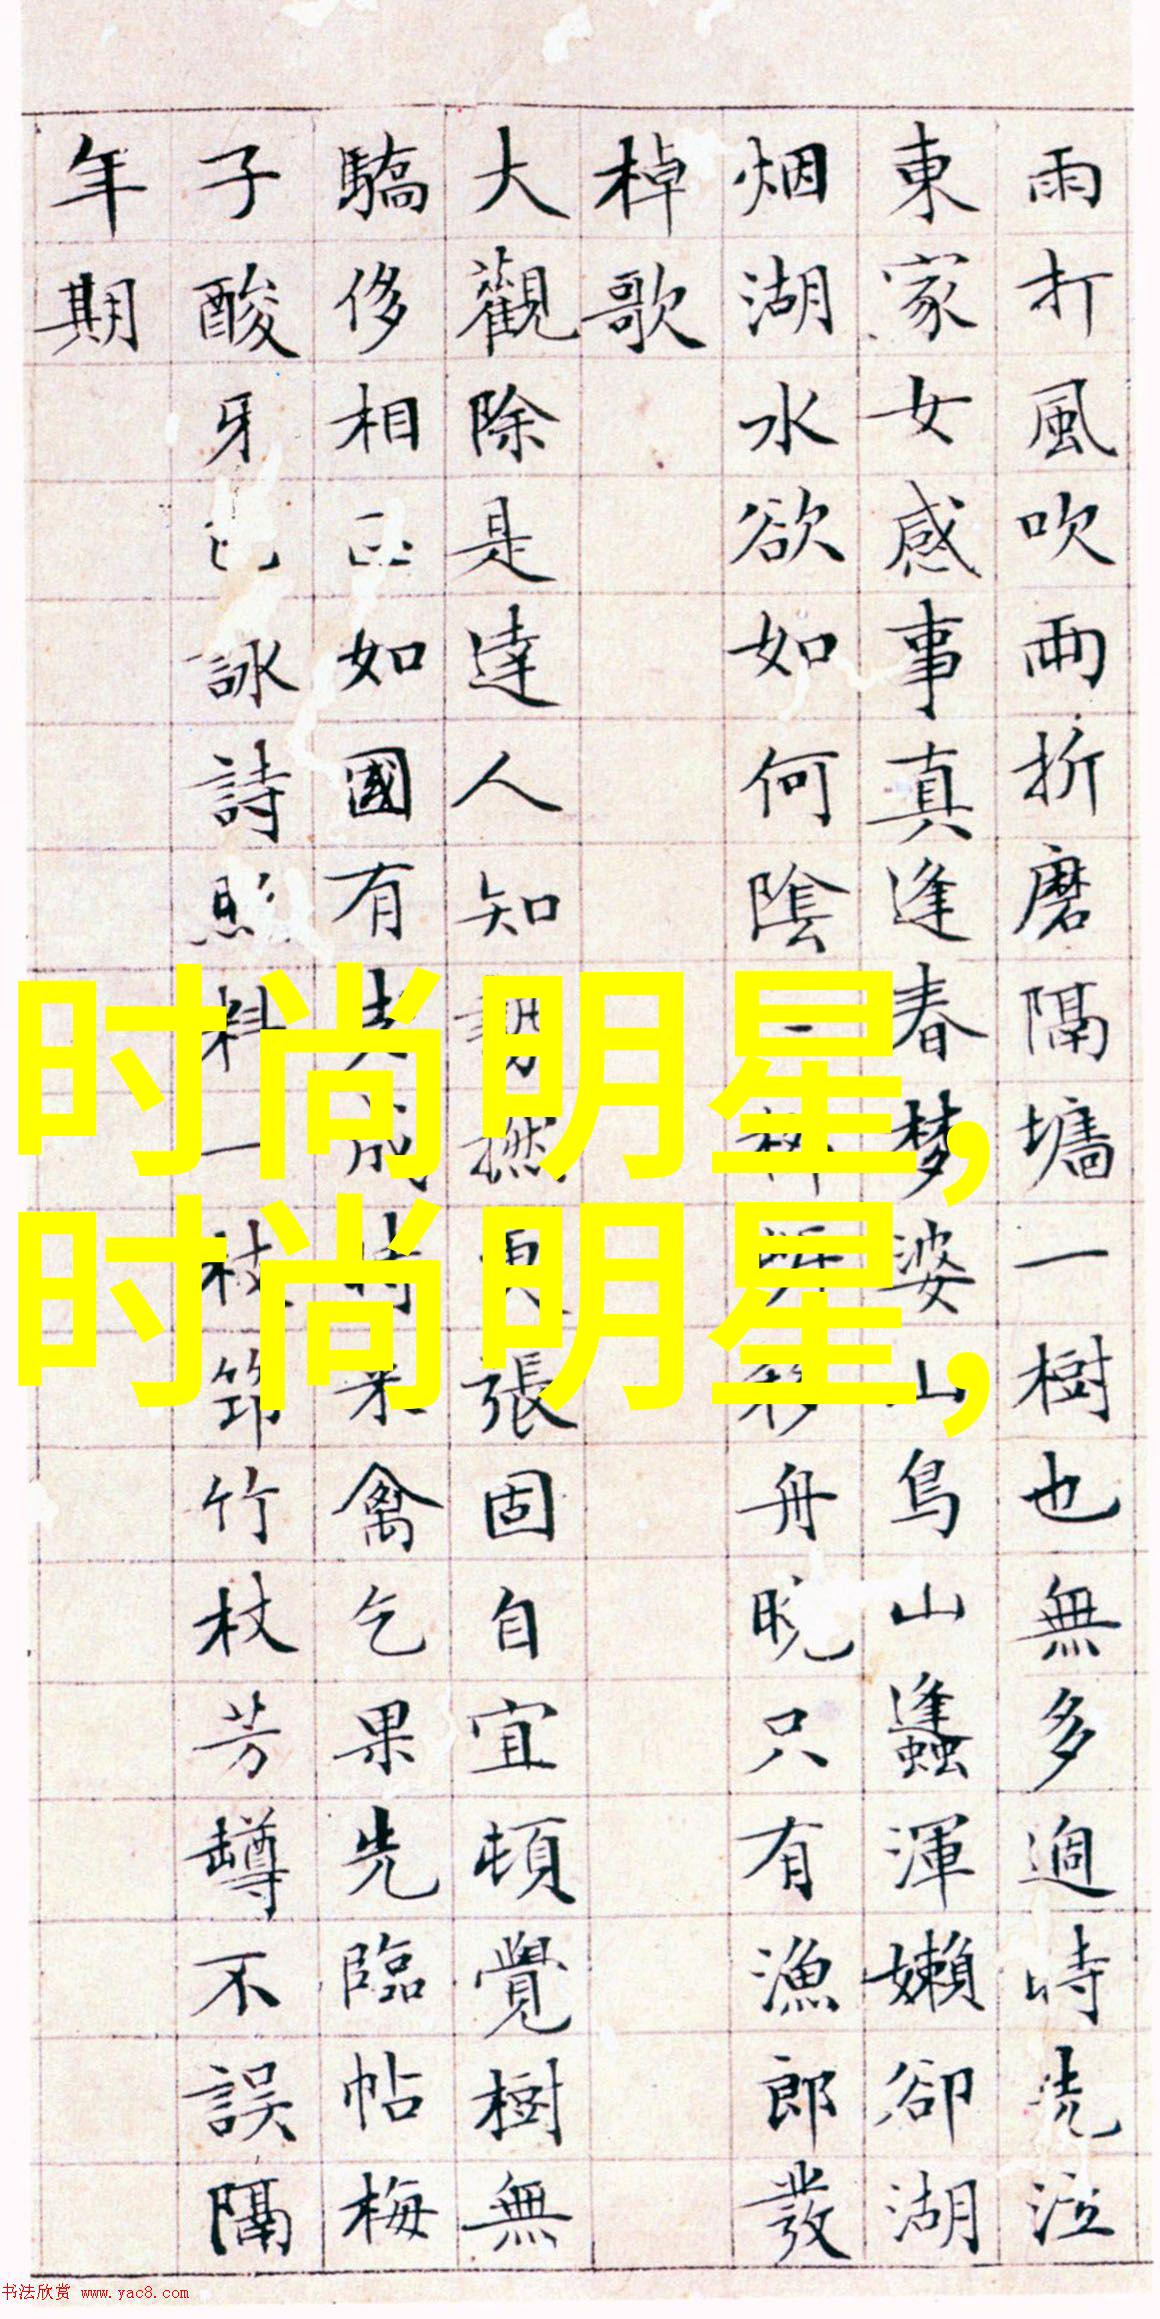 雨打風吹兩折磨隔墻一樹也無多過時洗泣
東家女感事真逢春梦婆山鳥山蠭渾嬾卻湖
烟湖水欲如何陰
舟晚只有漁郎發
棹歌
大觀除是達人知
張固自宜頓覺樹無
驕侈相如國有
禽乞果先臨帖梅
子酸牙詠詩
一枝筇竹杖芳罇不誤隔
年期
时尚明星,
时尚明星,
书法欣赏 www.yac8.com